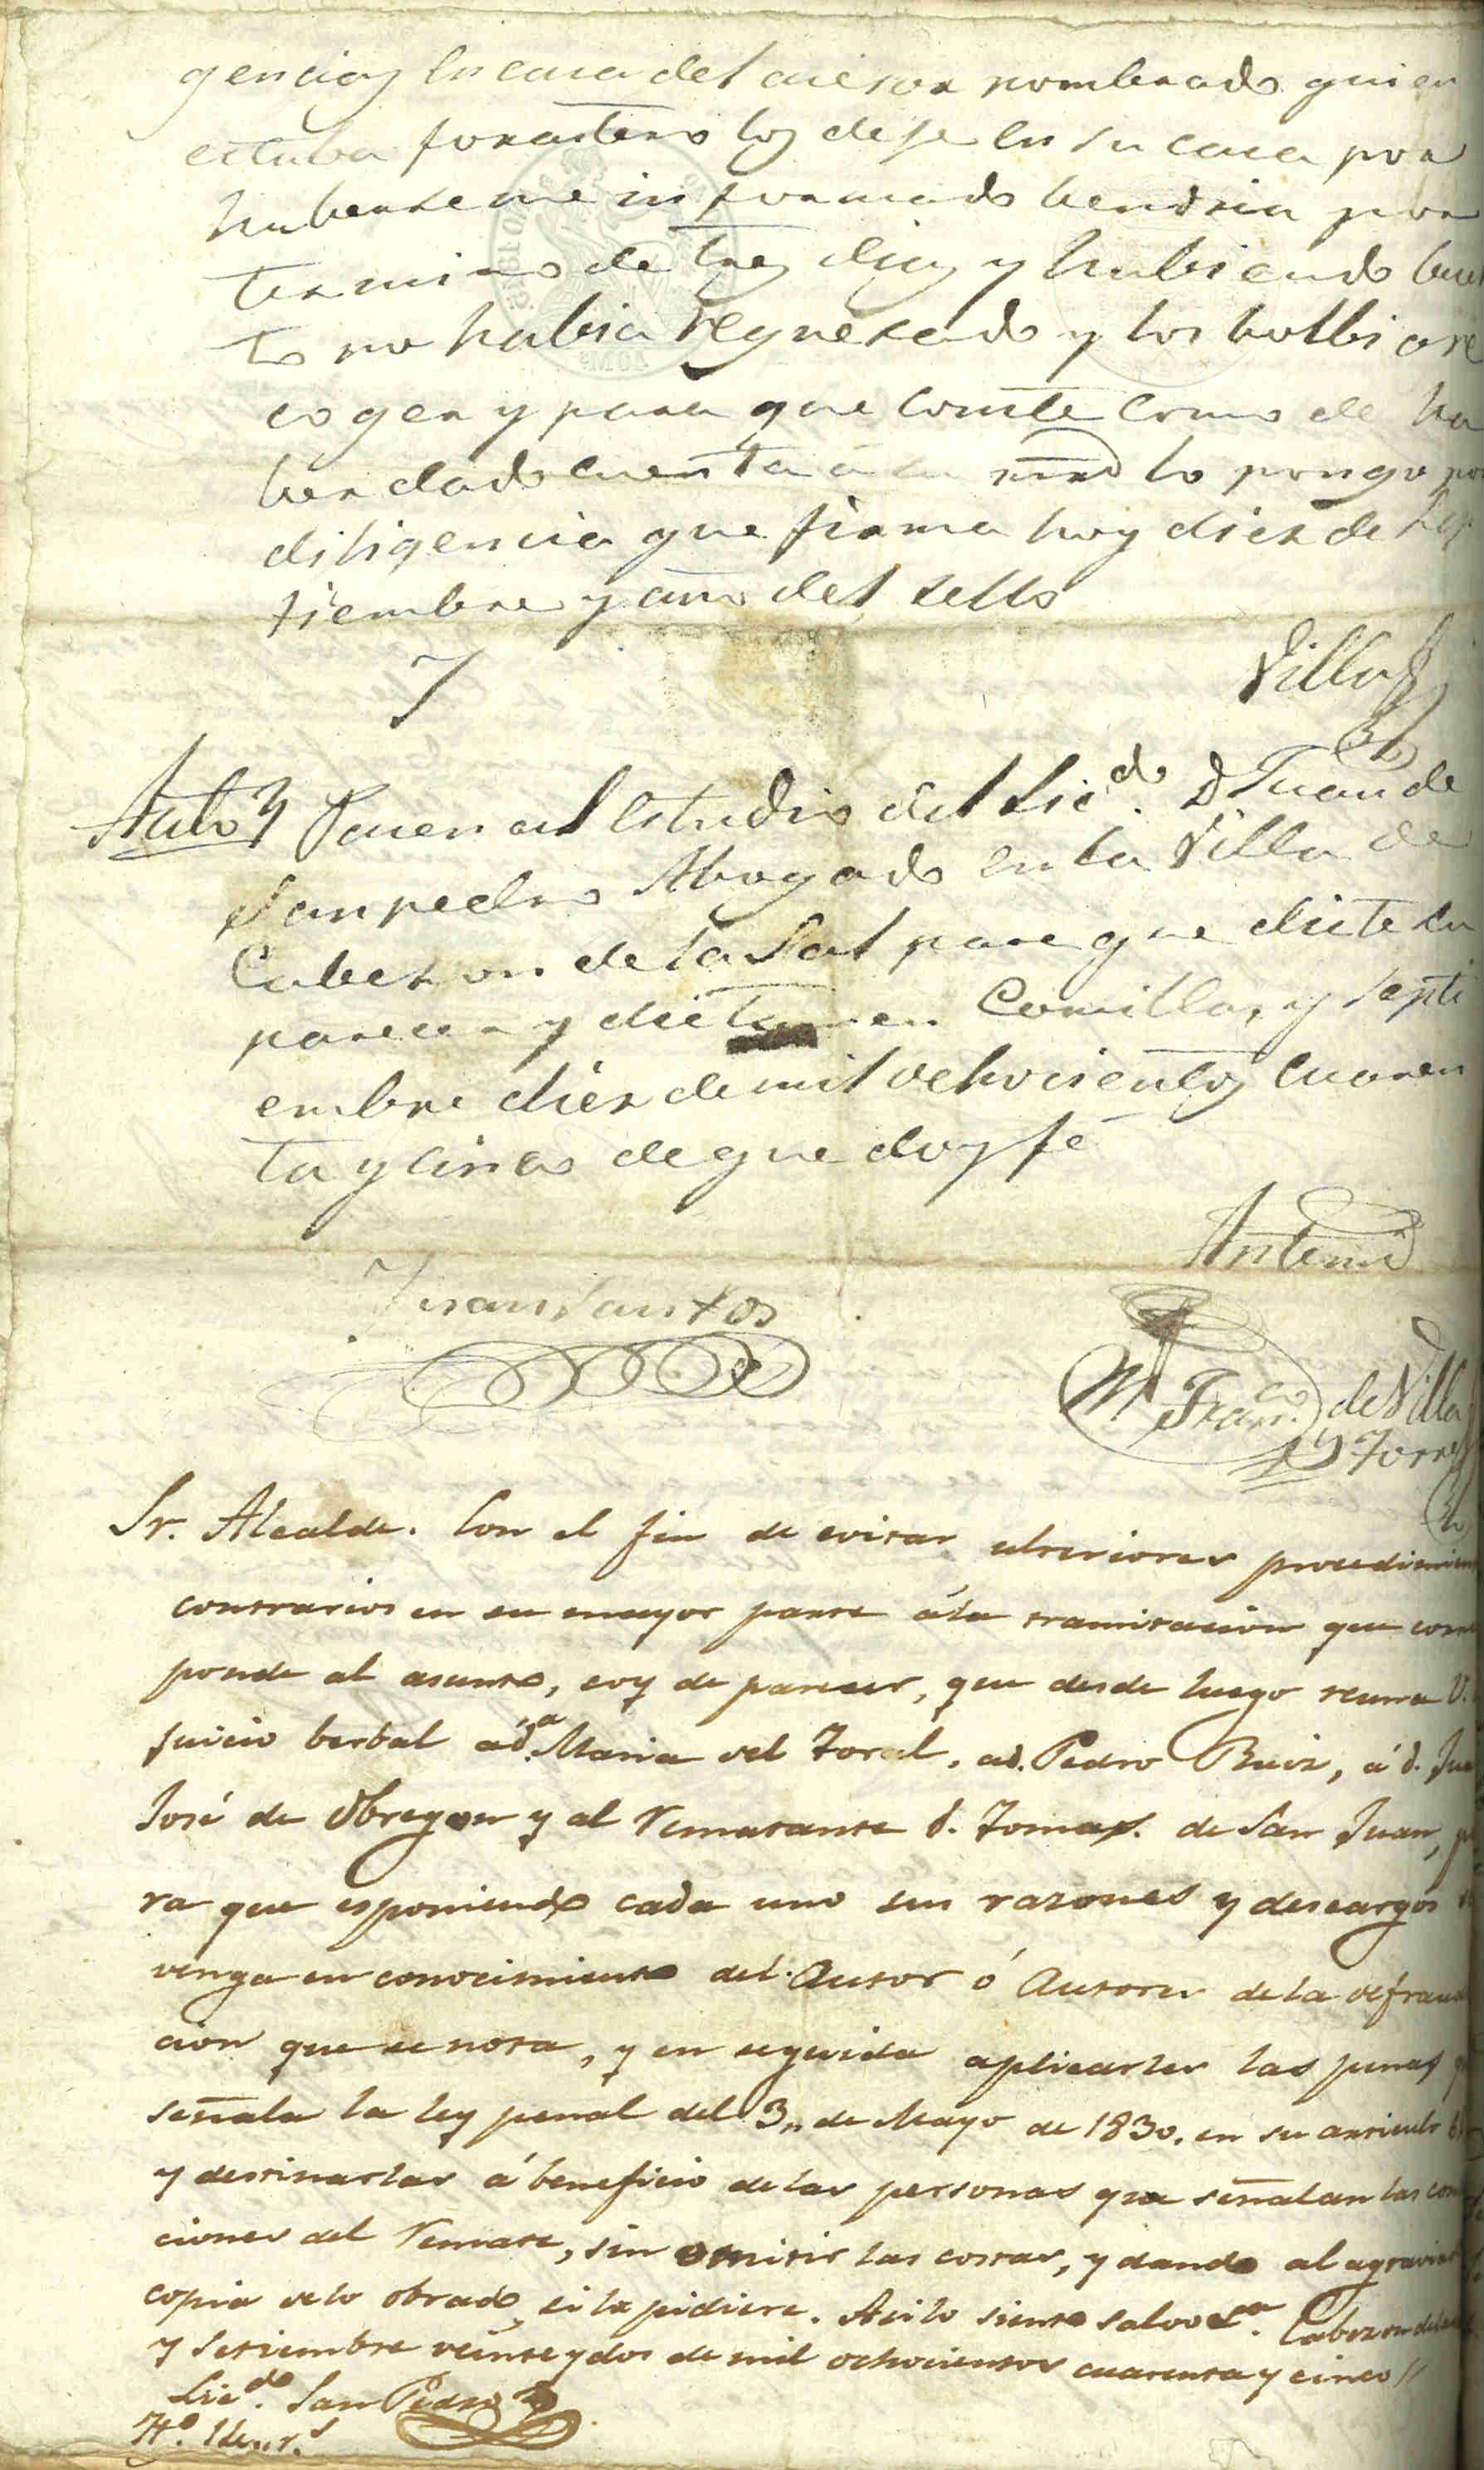 gencias en casa del asesor nombrado quien
estaba forastero los deje en su casa por
haberseme informado bendria por
termino de tres dias y habiendo buel
to no habia regresado y los bolbi a re
coger y para que conste como de ha
ber dado cuenta a su mrd lo pongo por
diligencia que firma hoy diez de Sep
tiembre y año del sello
Villa
Auto Pasen al estudio del Licdo. D Juan de
Sanpedro Abogado en la Villa de
Cabezon de la Sal para que dicte su
parecer y dictamen Comillas y Septi
embre diez de mil ochocientos cuaren
ta y cinco de que doy fé
Antemi
Juan Santos
M Franco. de Villa
y Torre
Sr. Alcalde. Con el fin de evitar ulteriores procedimien
contrarios en su mayor parte á la tramitacion que corres
ponde al asunto, soy de parecer, que desde luego reuna V.
juicio berbal a da. Maria del Toral, a d. Pedro Ruiz, á d. Juan
José de Obregon y al Rematante d. Tomas. de San Juan, pa
ra que esponiendo cada uno sus razones y descargos se
venga en conocimiento del Autor ó Autores de la defrauda
cion que se nota, y en seguida aplicarles las penas que
señala la ley penal del 3,, de Mayo de 1830. en su articulo
y destinarlas á beneficio de las personas que señalan las condi
ciones del Remate, sin omitir las costas, y dando al agraviado
copia de lo obrado si la pidiere. Asi lo siento salvo Cabezon de la
y Setiembre veinte y dos de mil ochocientos cuarenta y cinco //
Licdo. San Pedro